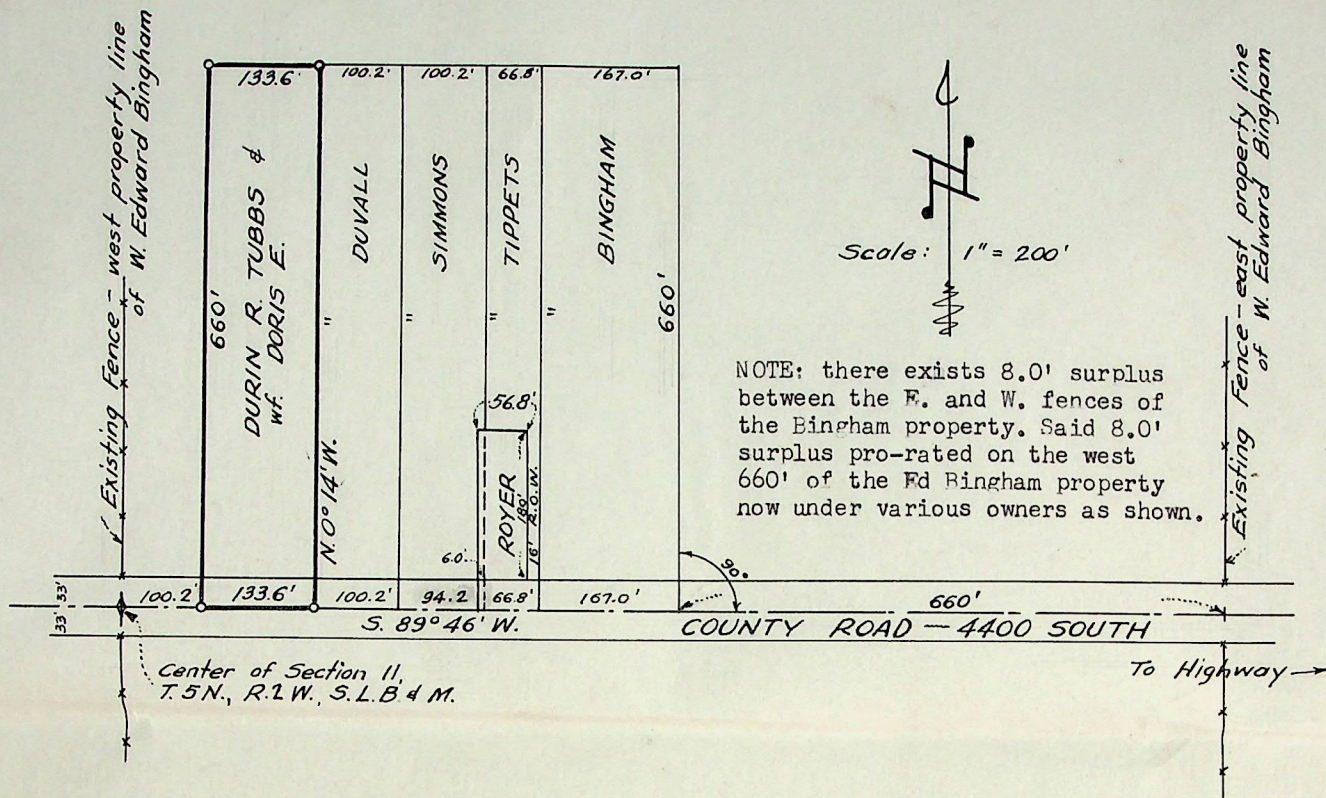 Existing Fence - west property line
of W. Edward Bingham
133.6'
100.2'
100.2'
66.8'
167.0'
660'
DURIN R. TUBBS &
wf. DORIS E.
N. 0° 14' W.
DUVALL
"
SIMMONS
"
TIPPETS
"
BINGHAM
"
660'
56.8'
ROYER
180'
16' R.O.W.
6.0'
N
Scale: 1" = 200'
NOTE: there exists 8.0' surplus
between the E. and W. fences of
the Bingham property. Said 8.0'
surplus pro-rated on the west
660' of the Ed Bingham property
now under various owners as shown.
Existing Fence - east property line
of W. Edward Bingham
90°
33'
33'
100.2'
133.6'
100.2'
94.2
66.8'
167.0'
660'
S. 89° 46' W.
COUNTY ROAD - 4400 SOUTH
Center of Section 11,
T. 5 N., R. 2 W., S. L. B & M.
To Highway